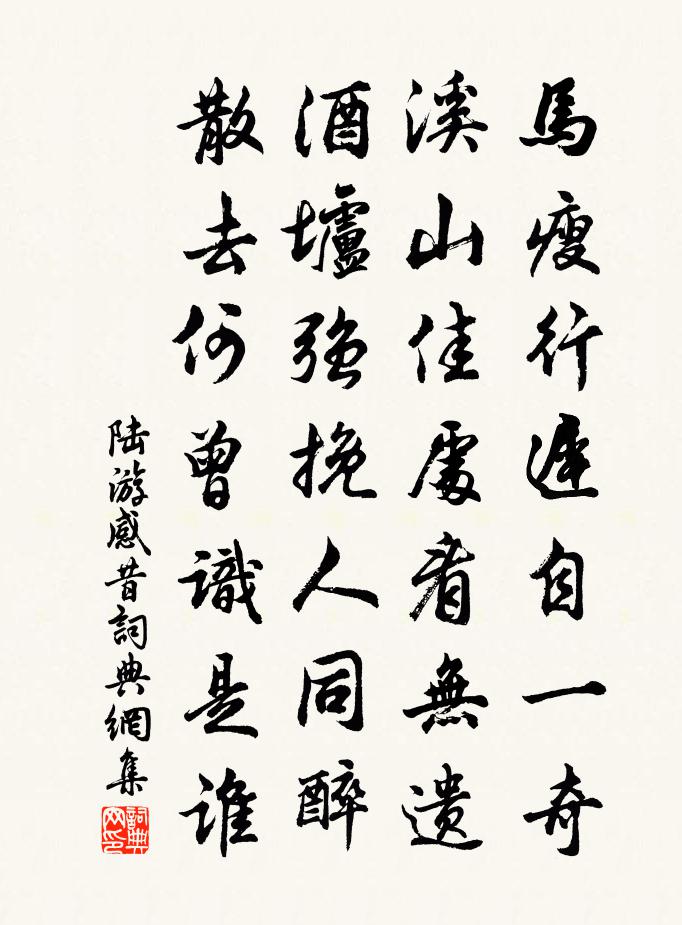 馬瘦行遲自一奇
溪山佳處看無遺
酒壚強挽人同醉
散去何曾識是誰
陸游感昔詞典網集
詞典網印